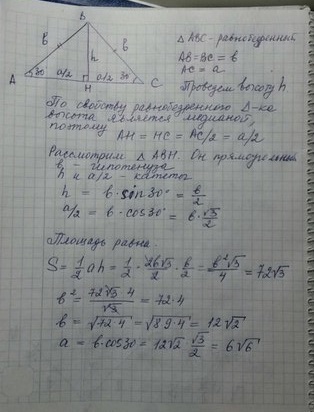 B
Δ ABC - равнобедренний
b
b
AB = BC = b
h
AC = a
A
30
a/2
a/2
30
C
H
Проведем высоту h
По свойству равнобедренного Δ-ка
высота является медианой,
поэтому
AH = HC = AC/2 = a/2
Рассмотрим Δ ABH. Он прямоугольний
b - гипотенуза
h и a/2 - катеты
h = b·sin30° = b/2
a/2 = b·cos30° = b·√3/2
Площадь равна:
S = 1/2 ah = 1/2 · 2b√3/2 · b/2 = b²√3/4 = 72√3
b² = 72√3·4/√3 = 72·4
b = √72·4 = √8·9·4 = 12√2
a = b·cos30 = 12√2 √3/2 = 6√6